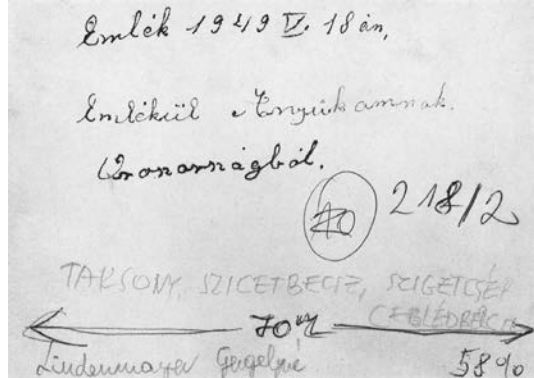 Emlék 1949 V. 18 án,
Emlékül Anyukámnak.
Oroszországból.
218/2
70
TAKSONY, SZIGETBECSE, SZIGETCSÉP
CEGLÉDBERCEL
70%
Lindenmayer Gergelyné
58%